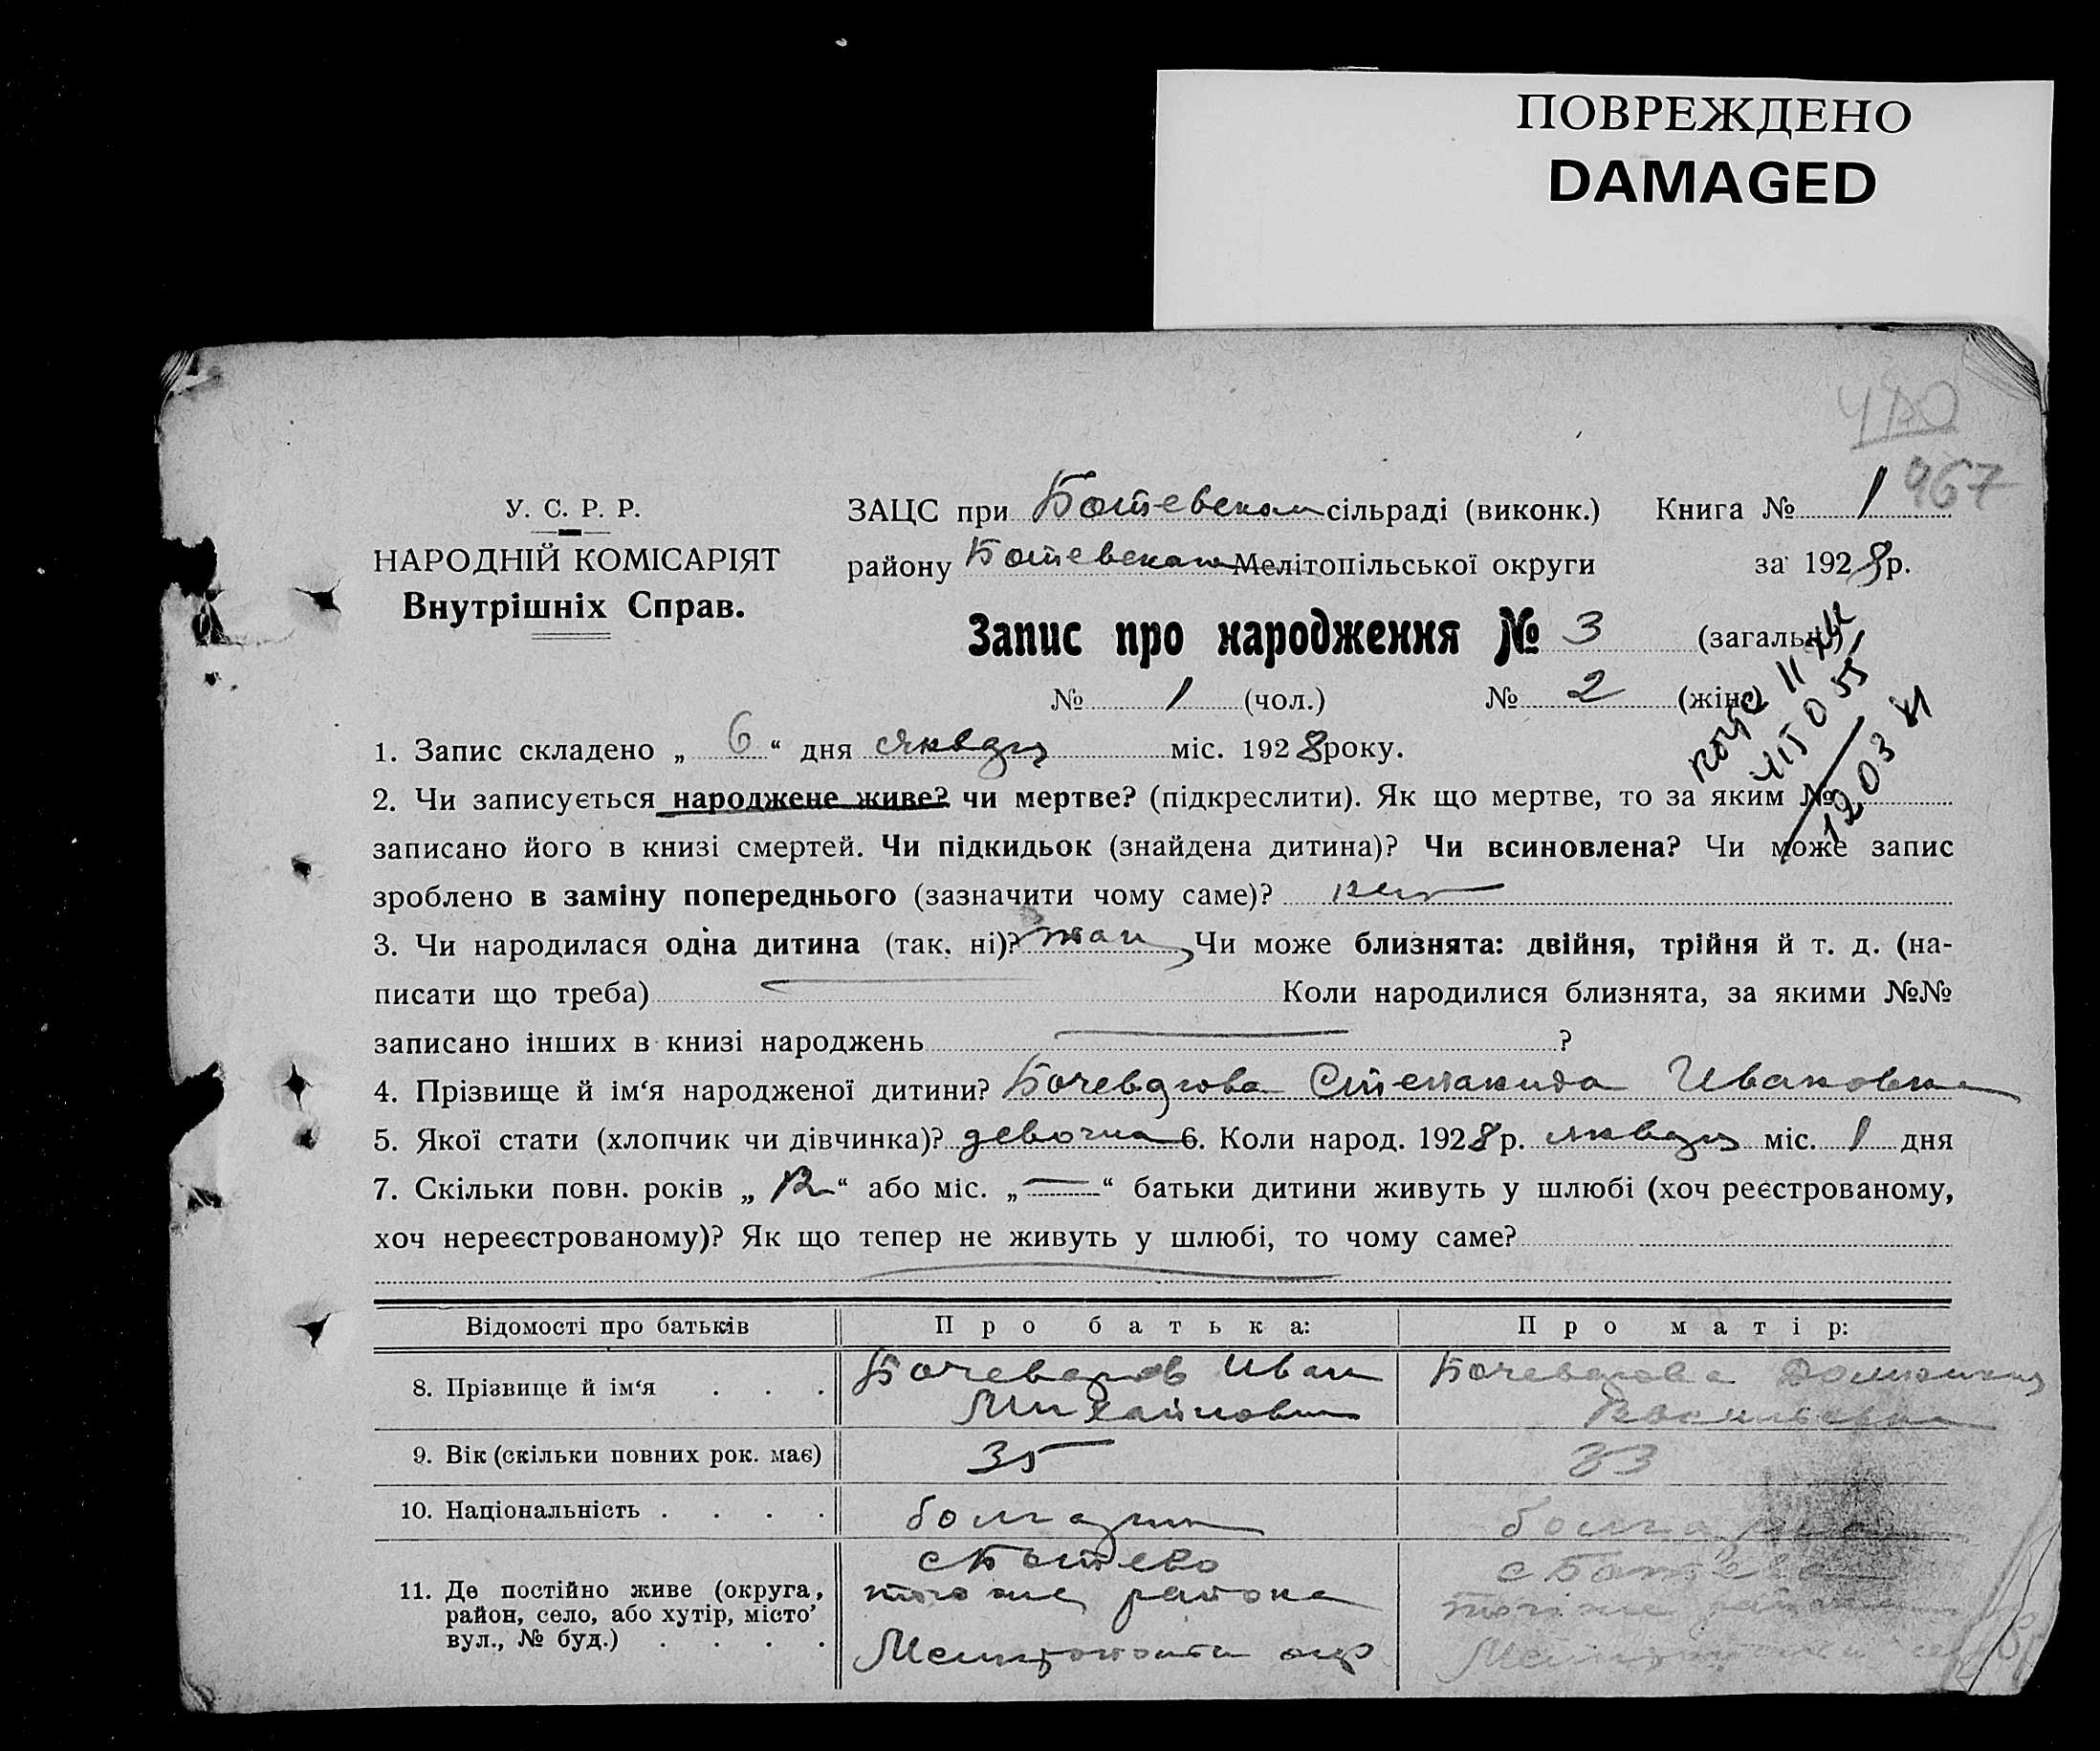 ПОВРЕЖДЕНО
DAMAGED
967
У. С. Р. Р.
НАРОДНІЙ КОМІСАРІЯТ
Внутрішніх Справ.
ЗАЦС при Ботевском сільраді (виконк.) Книга № 1
району Ботевскаго Мелітопільської округи за 1928 р.
Запис про народження № 3 (загальн.)
№ 1 (чол.) № 2 (жін.)
1. Запис складено „ 6 “ дня января міс. 1928 року.
2. Чи записується народжене живе? чи мертве? (підкреслити). Як що мертве, то за яким №
записано його в книзі смертей. Чи підкидьок (знайдена дитина)? Чи всиновлена? Чи може запис
зроблено в заміну попереднього (зазначити чому саме)? нет
3. Чи народилася одна дитина (так, ні)? так Чи може близнята: двійня, трійня й т. д. (на-
писати що треба) Коли народилися близнята, за якими №№
записано інших в книзі народжень ?
4. Прізвище й ім‘я народженої дитини? Бочеварова Степанида Ивановна
5. Якої стати (хлопчик чи дівчинка)? девочка 6. Коли народ. 1928 р. января міс. 1 дня
7. Скільки повн. років „ 12 “ або міс. „ — “ батьки дитини живуть у шлюбі (хоч реєстрованому,
хоч нереєстрованому)? Як що тепер не живуть у шлюбі, то чому саме?
Відомості про батьків Про батька: Про матір:
8. Прізвище й ім‘я . . . Бочеваров Иван Бочеварова Домникия
Михайлович Васильевна
9. Вік (скільки повних рок. має) 35 33
10. Національність . . . . болгарин болгарка
11. Де постійно живе (округа, район, село, або хутір, місто, вул., № буд.) . . . .
с Ботево с Ботево
того же района того же района
Мелитопольск окр Мелитопольск окр